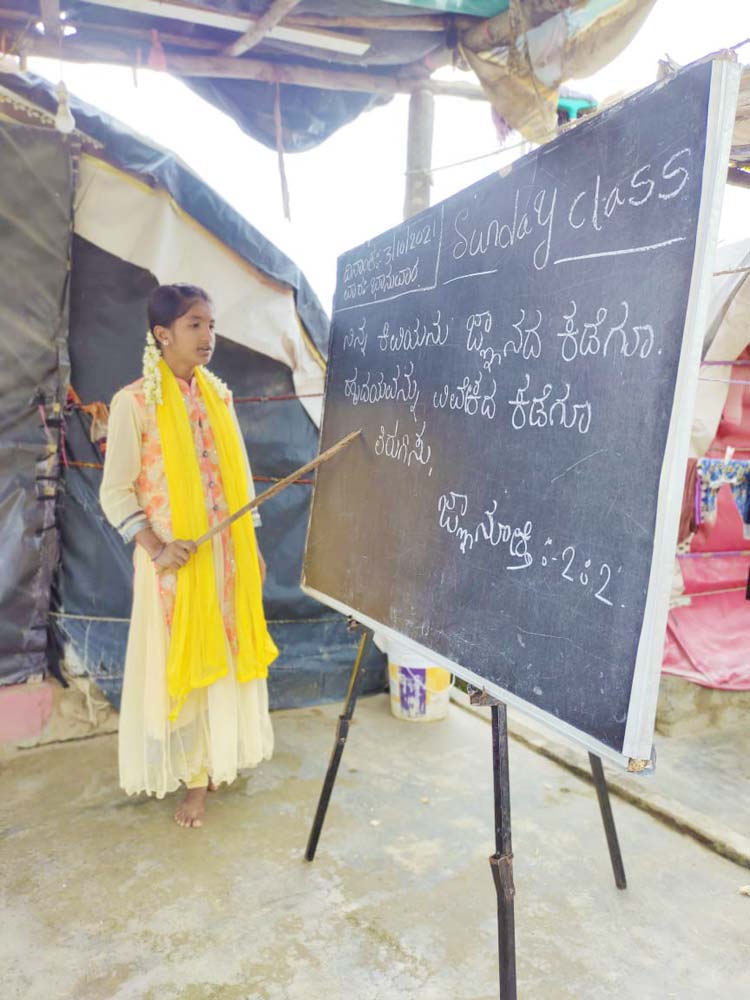 ದಿನಾಂಕ:- 3/10/2021
ವಾರ:- ಭಾನುವಾರ
Sunday class
ನಿನ್ನ ಕಿವಿಯನು ಜ್ಞಾನದ ಕಡೆಗೂ.
ಹೃದಯವನ್ನು ವಿವೇಕದ ಕಡೆಗೂ
ತಿರುಗಿಸು.
ಜ್ಞಾನೋಕ್ತಿ :-2:2.